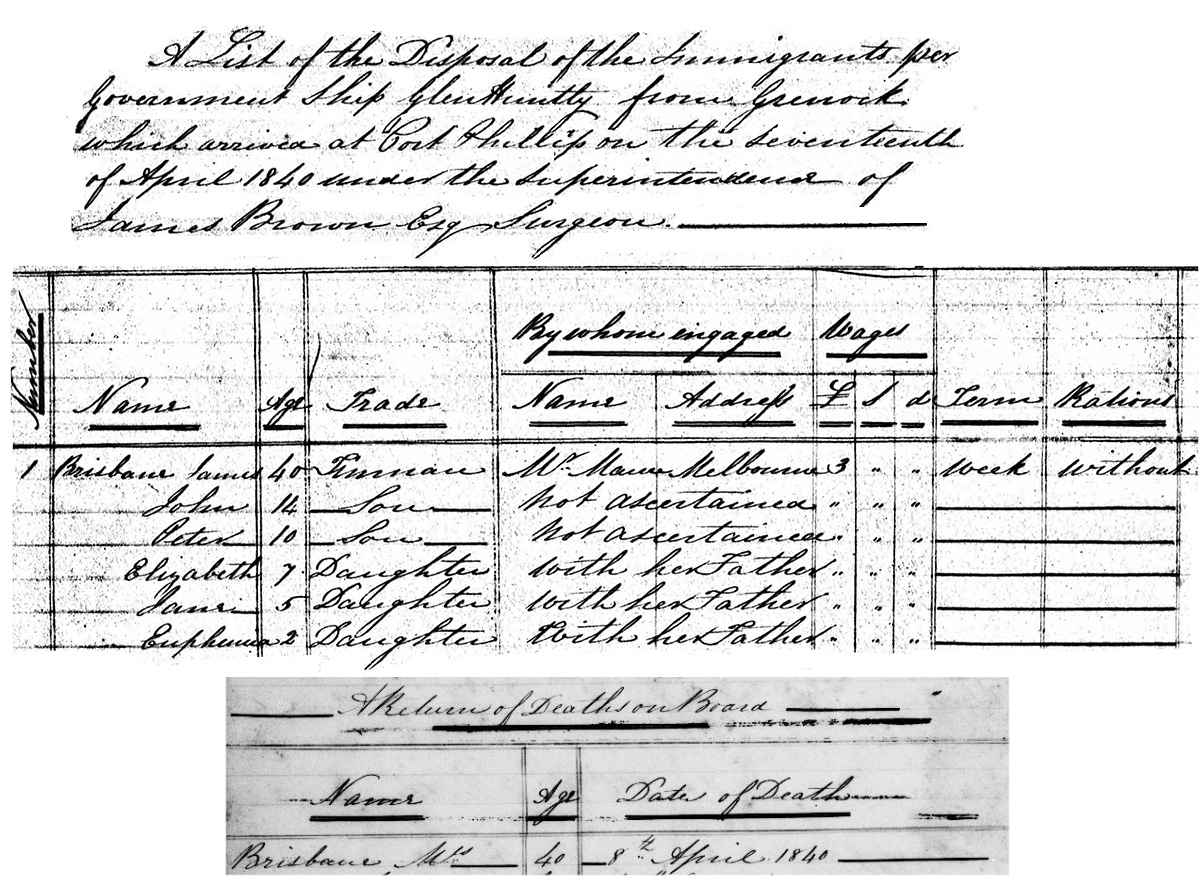 A List of the Disposal of the Immigrants per
Government Ship Glen Huntly from Grenock
which arrived at Port Phillip on the seventeenth
of April 1840 under the superintendence of
James Brown Esq Surgeon.
Number Name Age Trade By whom engaged Wages Term Rations
Name Address £ S d
1 Brisbane James 40 Tinman Mr. Melbourne 3 " " week without
John 14 Son not ascertained " " "
Peter 10 Son not ascertained " " "
Elizabeth 7 Daughter with her Father " " "
Jane 5 Daughter with her Father " " "
Euphemia 2 Daughter With her Father " " "
A Return of Deaths on Board
Name Age Date of Death
Brisbane Mrs 40 8th April 1840